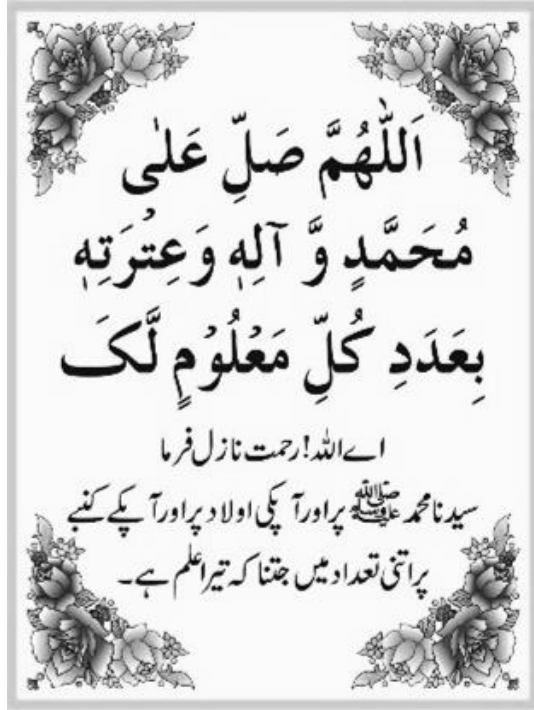 اَللّٰهُمَّ صَلِّ عَلٰی
مُحَمَّدٍ وَّ آلِهٖ وَعِتْرَتِهٖ
بِعَدَدِ کُلِّ مَعْلُوْمٍ لَّکَ
اے اللہ! رحمت نازل فرما
سیدنا محمد ﷺ پر اور آپکی اولاد پر اور آپکے کنبے
پر اتنی تعداد میں جتنا کہ تیرا علم ہے۔